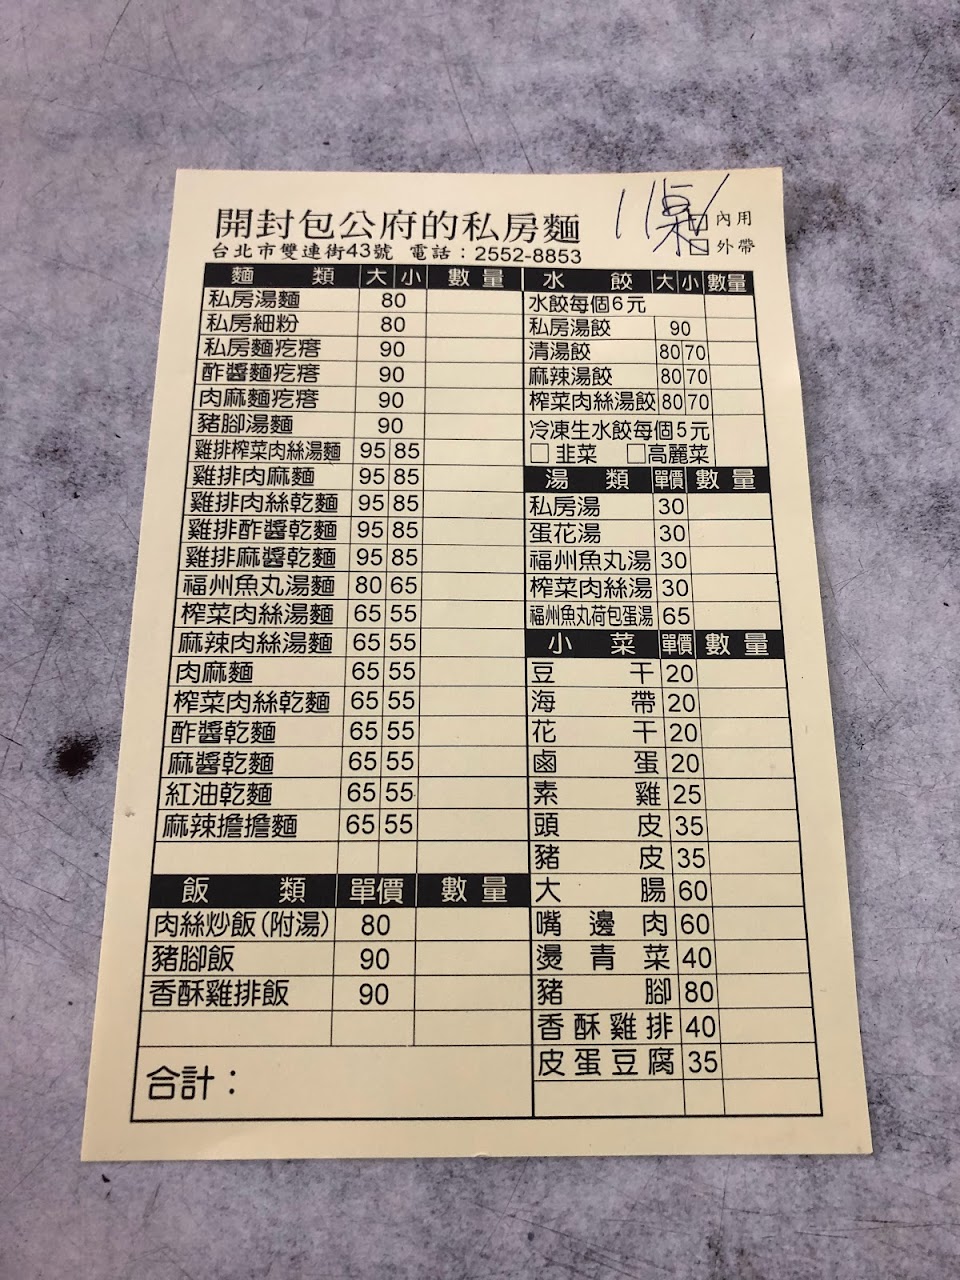 開封包公府的私房麵
台北市雙連街43號 電話：2552-8853
11桌
內用
外帶
麵類 大 小 數量
私房湯麵 80
私房細粉 80
私房麵疙瘩 90
酢醬麵疙瘩 90
肉麻麵疙瘩 90
豬腳湯麵 90
雞排榨菜肉絲湯麵 95 85
雞排肉麻麵 95 85
雞排肉絲乾麵 95 85
雞排酢醬乾麵 95 85
雞排麻醬乾麵 95 85
福州魚丸湯麵 80 65
榨菜肉絲湯麵 65 55
麻辣肉絲湯麵 65 55
肉麻麵 65 55
榨菜肉絲乾麵 65 55
酢醬乾麵 65 55
麻醬乾麵 65 55
紅油乾麵 65 55
麻辣擔擔麵 65 55
飯類 單價 數量
肉絲炒飯(附湯) 80
豬腳飯 90
香酥雞排飯 90
合計：
水餃 大 小 數量
水餃每個6元
私房湯餃 90
清湯餃 80 70
麻辣湯餃 80 70
榨菜肉絲湯餃 80 70
冷凍生水餃每個5元
□ 韭菜 □高麗菜
湯類 單價 數量
私房湯 30
蛋花湯 30
福州魚丸湯 30
榨菜肉絲湯 30
福州魚丸荷包蛋湯 65
小菜 單價 數量
豆干 20
海帶 20
花干 20
鹵蛋 20
素雞 25
頭皮 35
豬皮 35
大腸 60
嘴邊肉 60
燙青菜 40
豬腳 80
香酥雞排 40
皮蛋豆腐 35